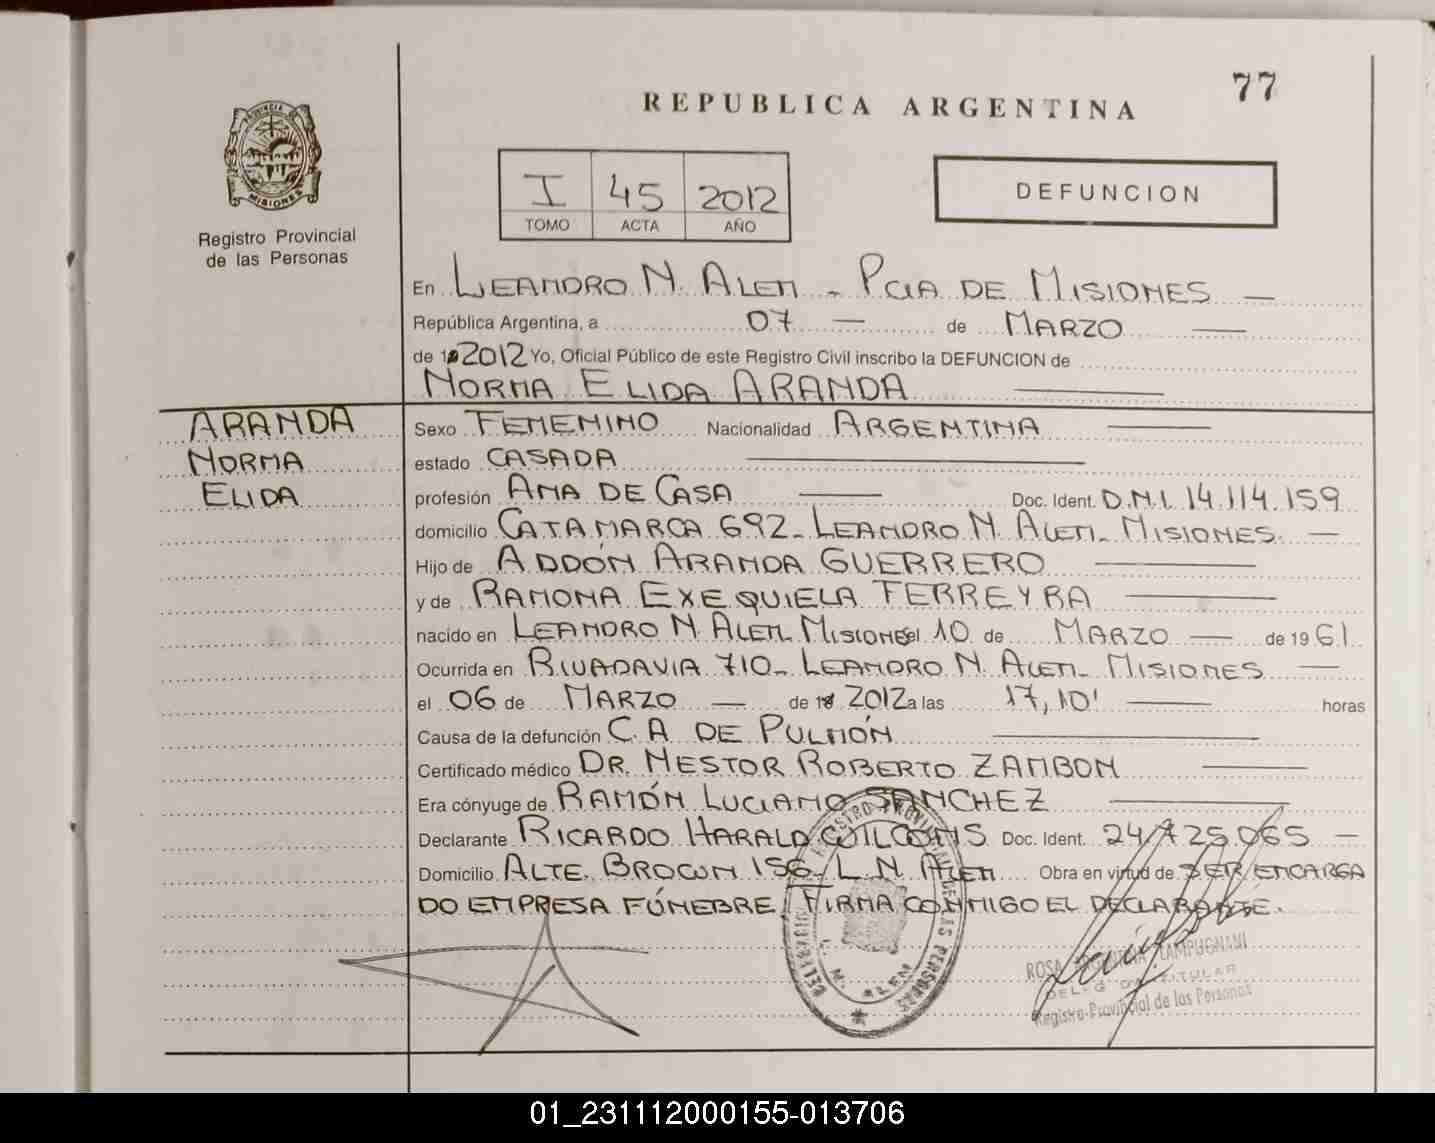 77
REPUBLICA ARGENTINA
PROVINCIA DE MISIONES
Registro Provincial
de las Personas
I 45 2012
TOMO ACTA AÑO
DEFUNCION
En LEANDRO N. ALEM - PCIA DE MISIONES —
República Argentina, a 07 — de MARZO —
de 2012 Yo, Oficial Público de este Registro Civil inscribo la DEFUNCION de
NORMA ELIDA ARANDA —
ARANDA
NORMA
ELIDA
Sexo FEMENINO Nacionalidad ARGENTINA —
estado CASADA —
profesión AMA DE CASA — Doc. Ident. D.N.I. 14.114.159
domicilio CATAMARCA 692- LEANDRO N. ALEM- MISIONES. —
Hijo de ADDÓN ARANDA GUERRERO —
y de RAMONA EXEQUIELA FERREYRA —
nacido en LEANDRO N. ALEM- MISIONES el 10 de MARZO — de 1961
Ocurrida en RIVADAVIA 710- LEANDRO N. ALEM- MISIONES —
el 06 de MARZO — de 2012 a las 17,10' — horas
Causa de la defunción C.A DE PULMÓN —
Certificado médico DR. NESTOR ROBERTO ZAMBON —
Era cónyuge de RAMÓN LUCIANO SANCHEZ —
Declarante RICARDO HARALD Doc. Ident. 24.725.065 —
Domicilio ALTE. BROWN 156- L.N. ALEM Obra en virtud de SER ENCARGA
DO EMPRESA FÚNEBRE. FIRMA CONMIGO EL DECLARANTE.
REGISTRO PROVINCIAL DE LAS PERSONAS
L. N. ALEM
ROSA ARGENTINA LAMPUGNANI
TITULAR
Registro Provincial de las Personas
01_231112000155-013706